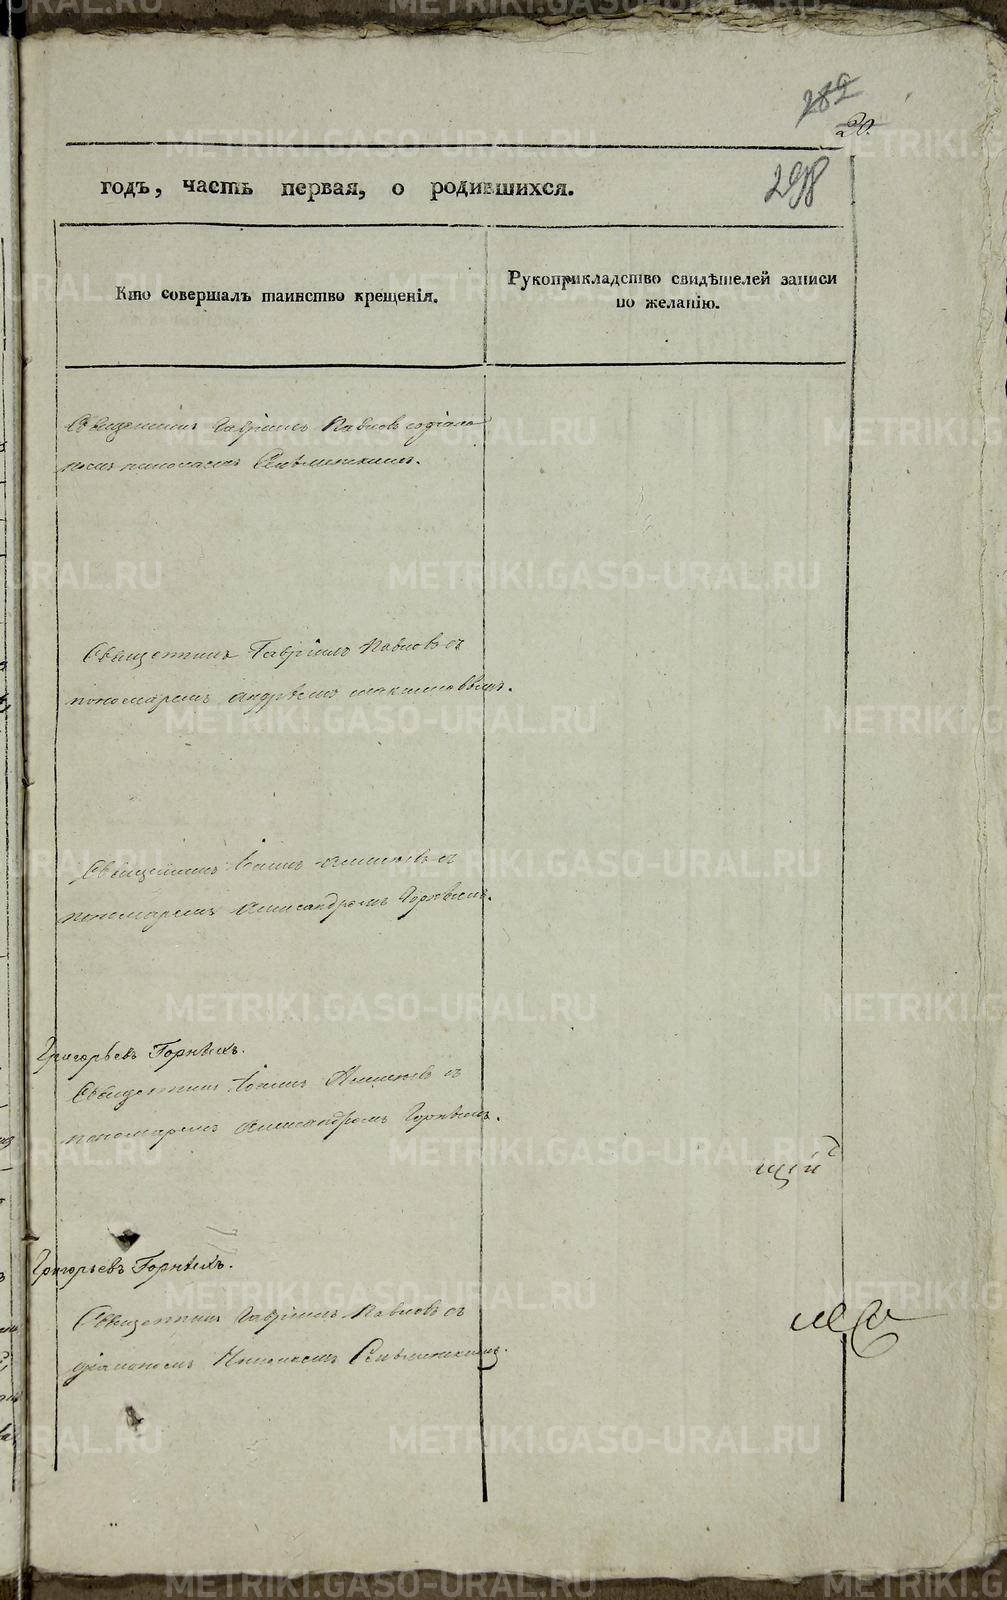 282
20.
298
годъ, часть первая, о родившихся.
Кто совершалъ таинство крещенія.
Рукоприкладство свидѣтелей записи
по желанію.
Священникъ Гавріилъ Павловъ съ діако
номъ
Священникъ Гавріилъ Павловъ съ
пономаремъ Андрѣемъ
Священникъ Іоаннъ съ
пономаремъ Александромъ Горнымъ.
Григорьевъ Горныхъ.
Священникъ Іоаннъ съ
пономаремъ Александромъ Горнымъ.
щій
Григорьевъ Горныхъ.
Священникъ Гавріилъ Павловъ съ
діакономъ
METRIKI.GASO-URAL.RU